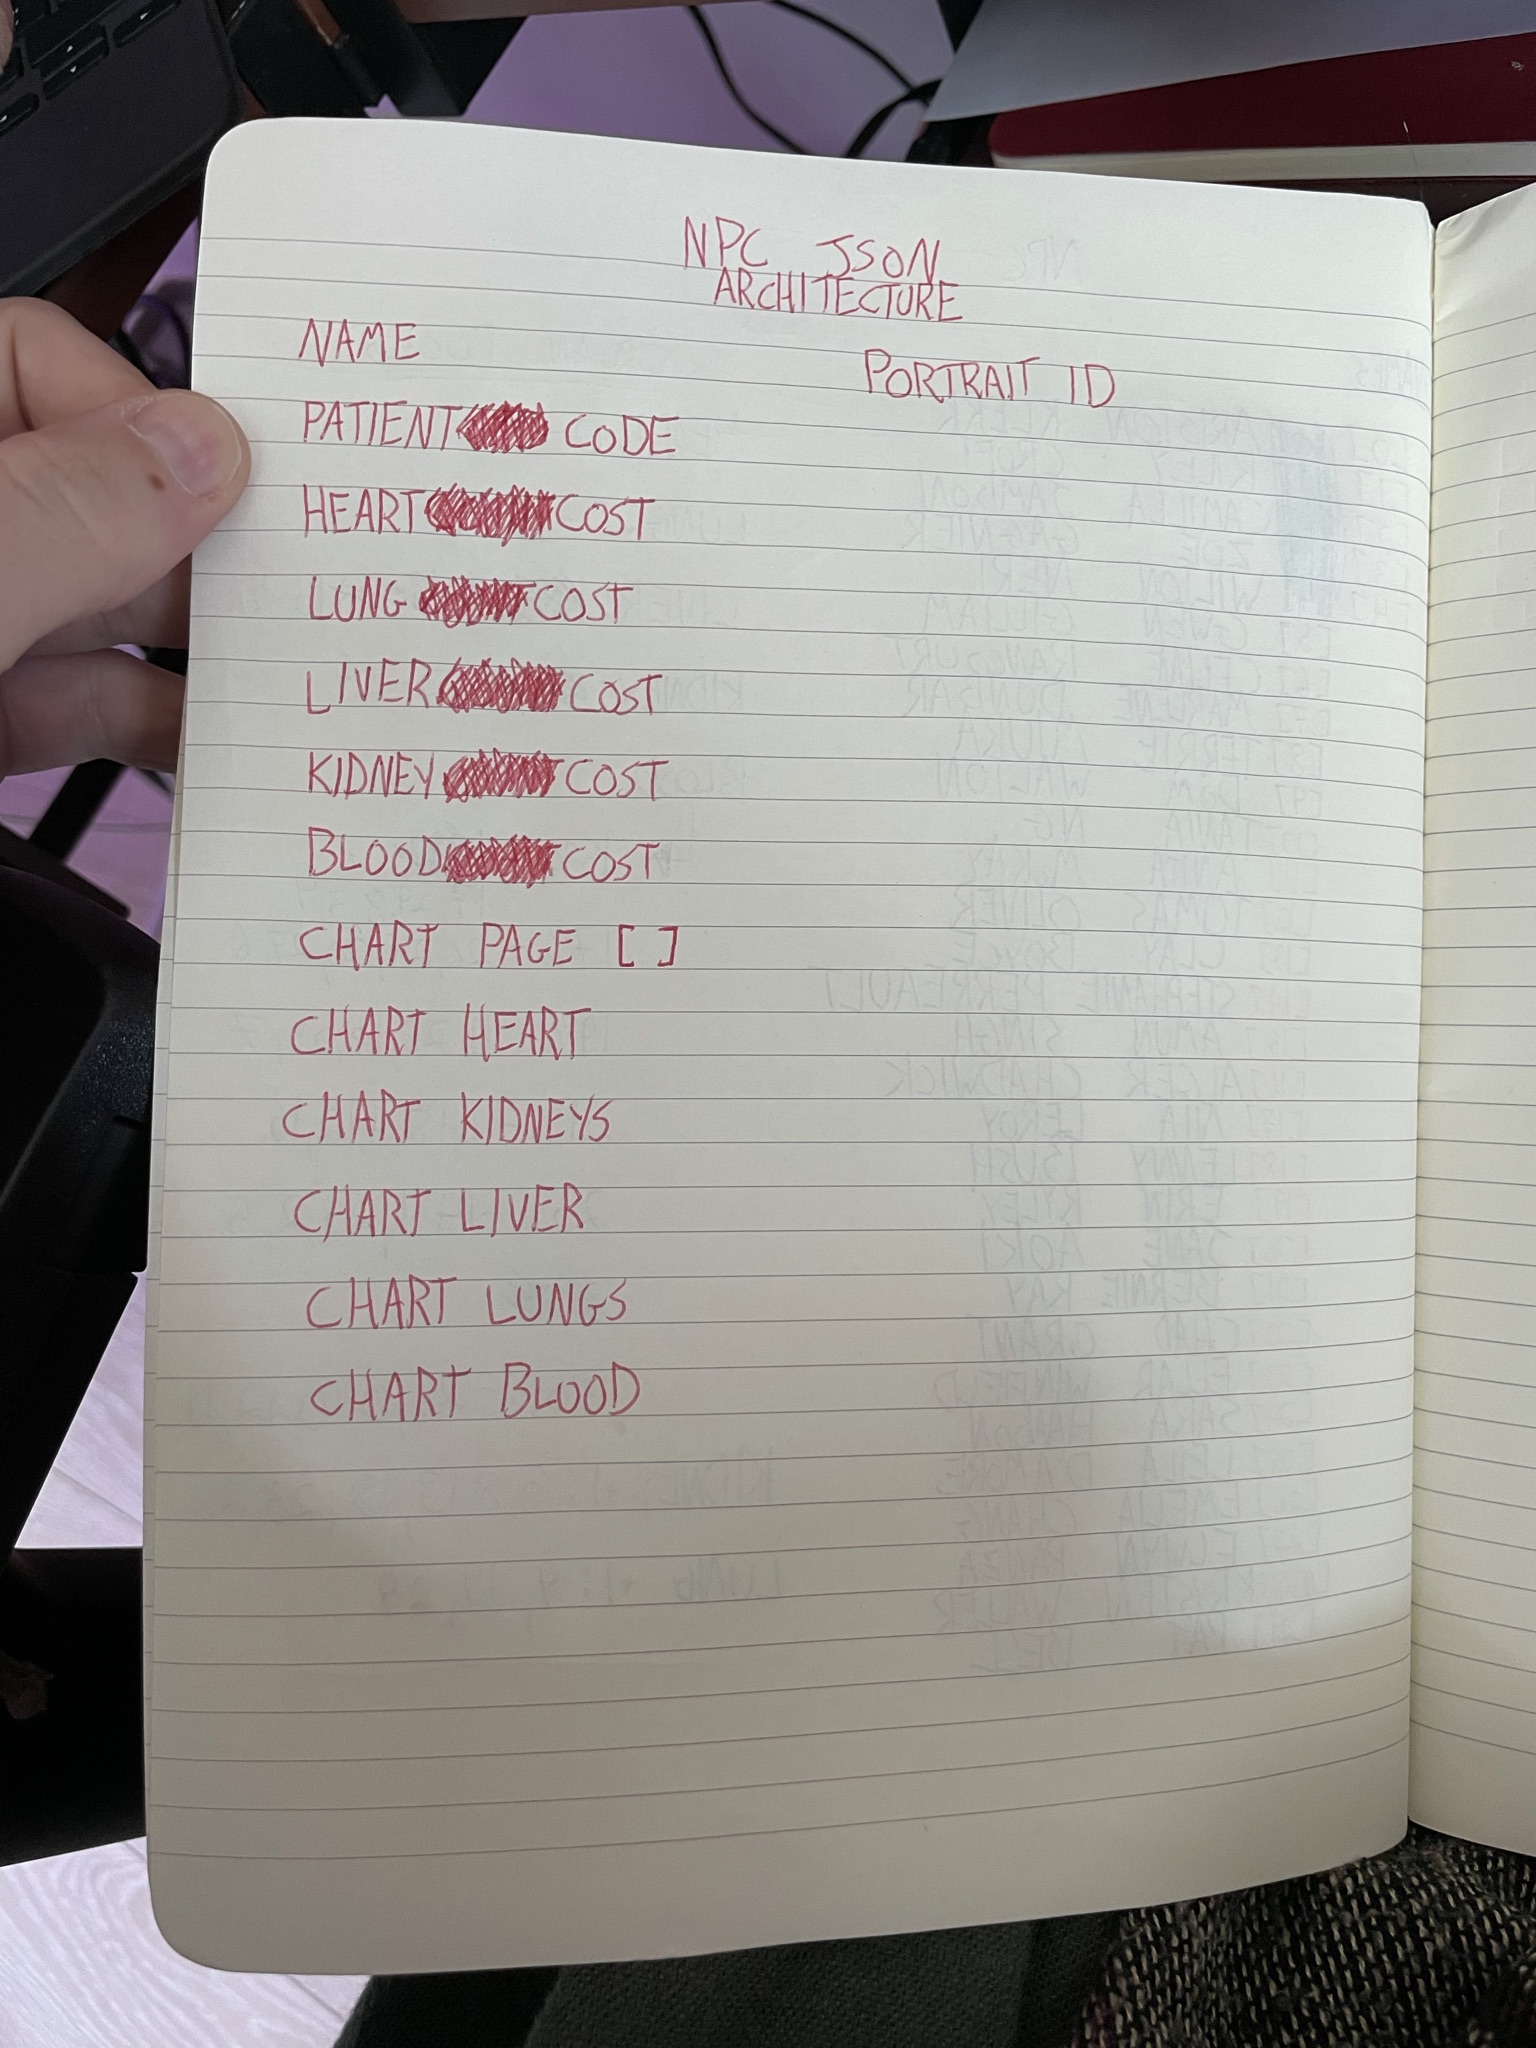 NPC JSON
ARCHITECTURE
NAME
PORTRAIT ID
PATIENT CODE
HEART COST
LUNG COST
LIVER COST
KIDNEY COST
BLOOD COST
CHART PAGE [ ]
CHART HEART
CHART KIDNEYS
CHART LIVER
CHART LUNGS
CHART BLOOD